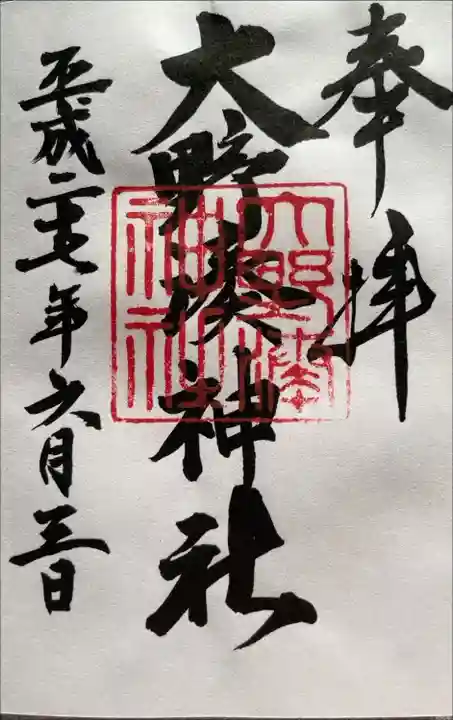 奉拝
大野湊神社
大野湊神社
平成二十七年六月三日